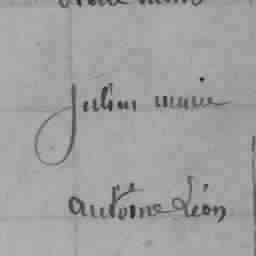 Julien marie
antoine Léon